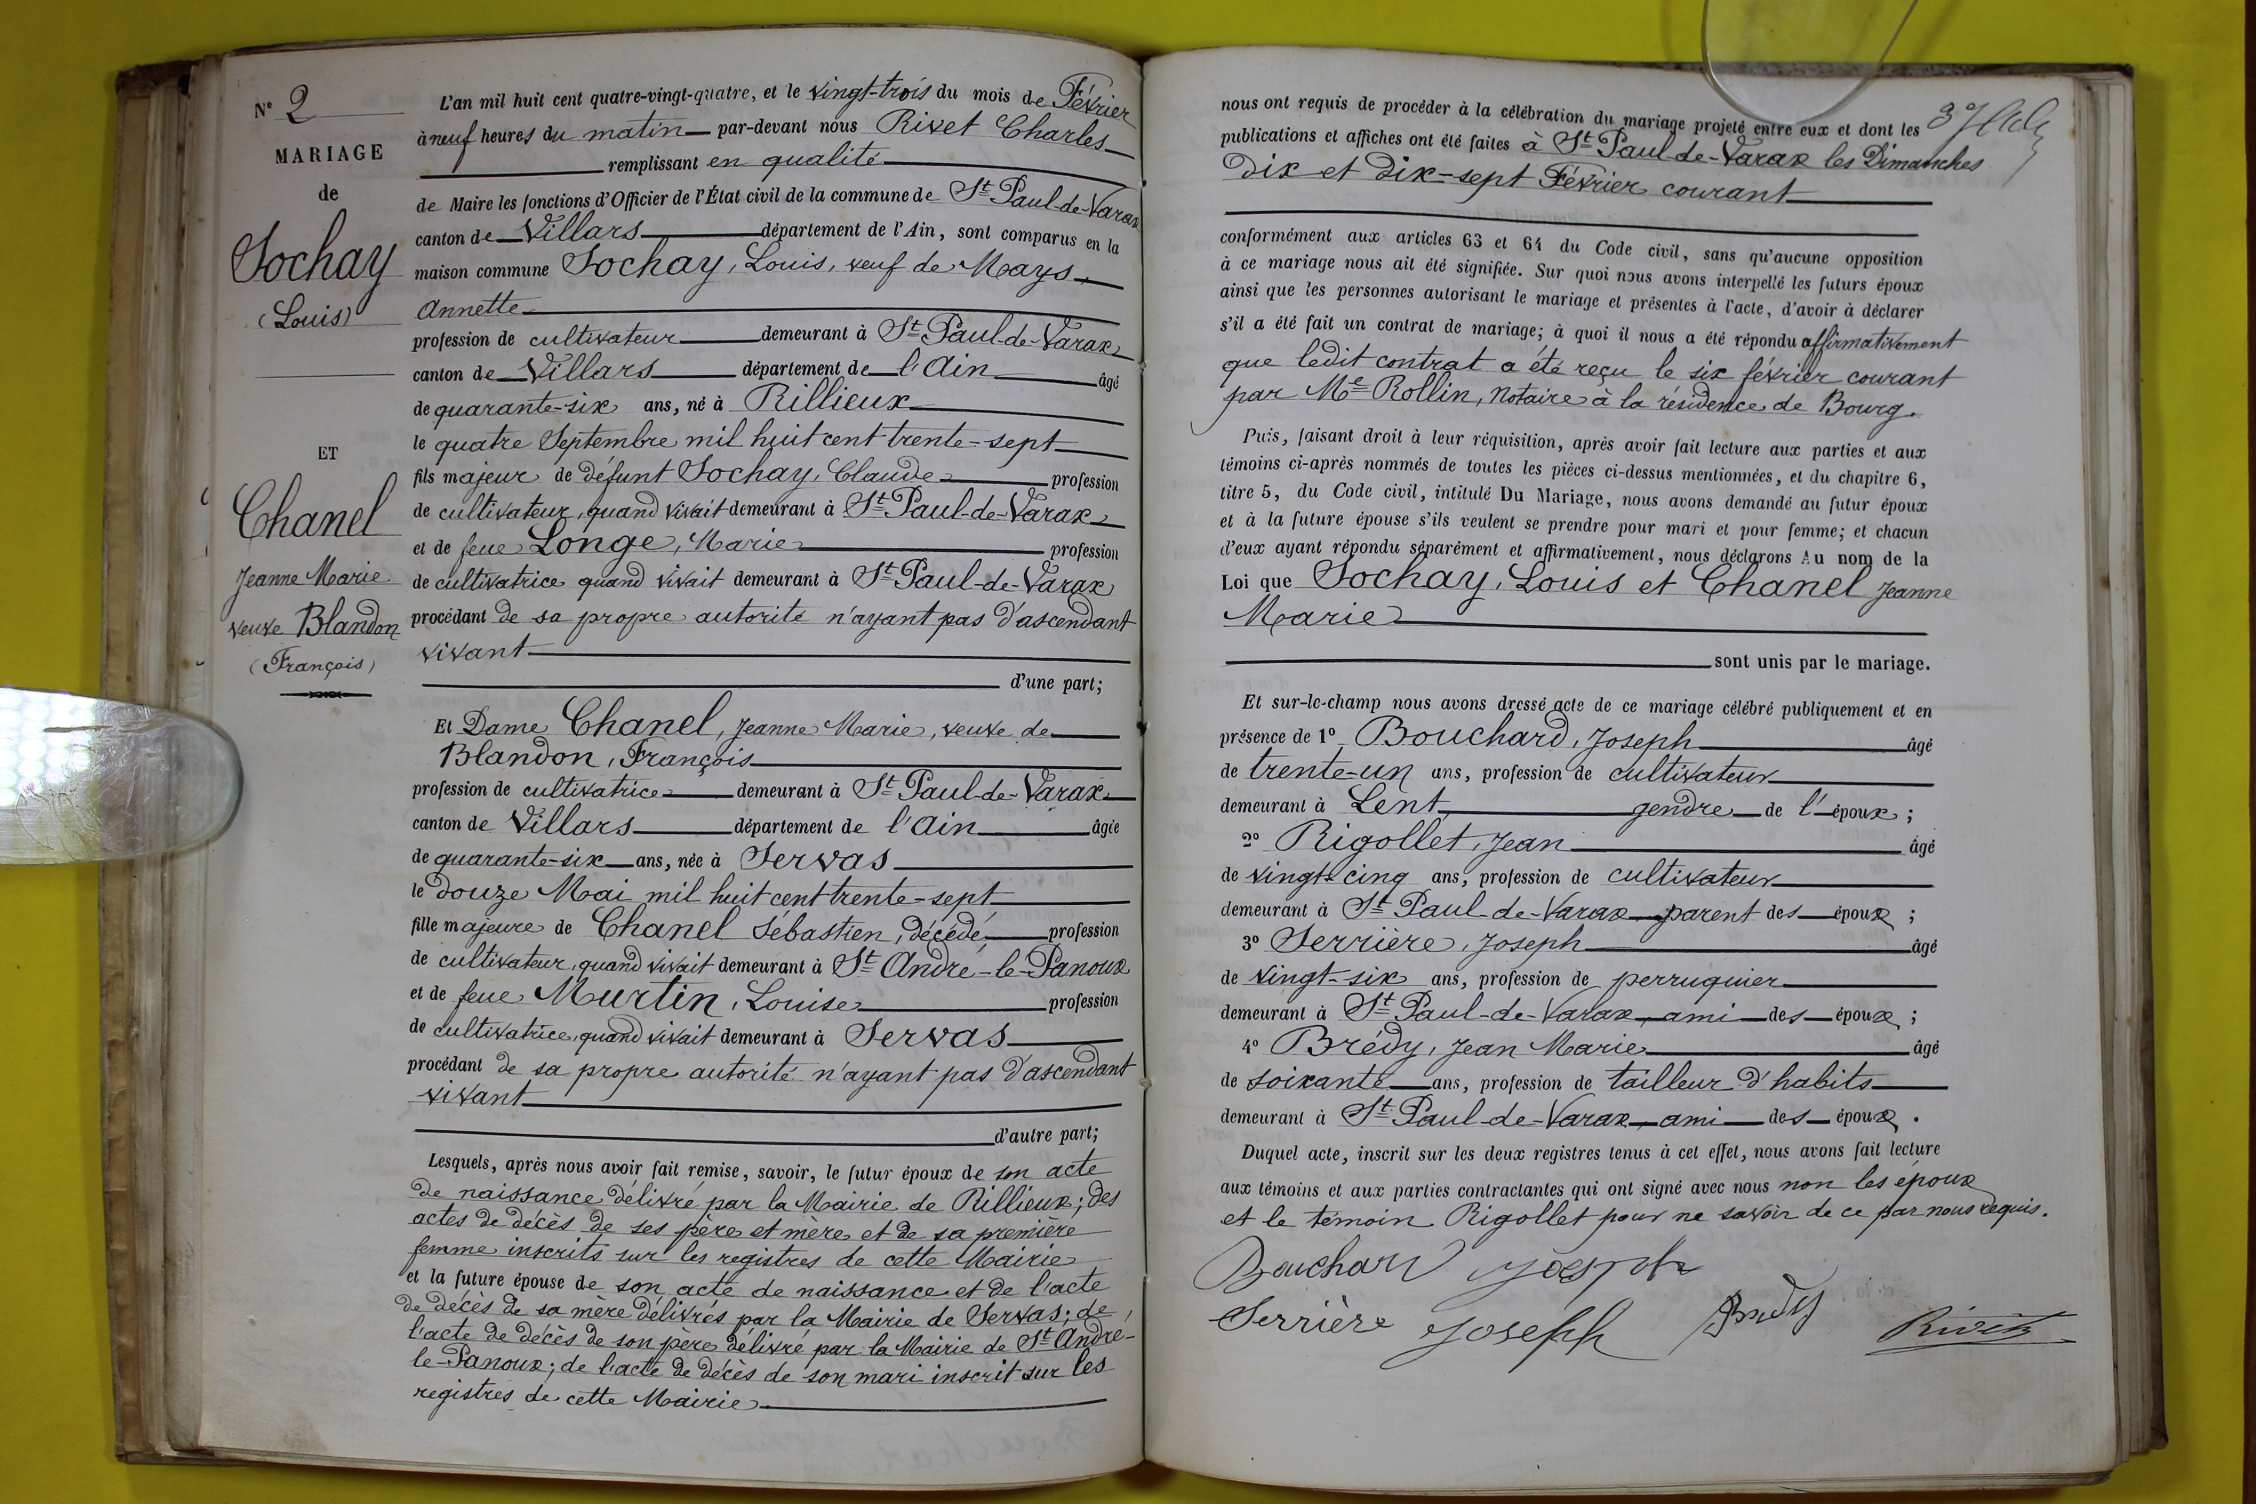 N° 2
MARIAGE
de
Sochay
(Louis)
ET
Chanel
Jeanne Marie
veuve Blandon
(François)
L'an mil huit cent quatre-vingt-quatre, et le vingt-trois du mois de Février
à neuf heures du matin par-devant nous Rivet Charles
remplissant en qualité
de Maire les fonctions d'Officier de l'État civil de la commune de St Paul-de-Varax
canton de Villars département de l'Ain, sont comparus en la
maison commune Sochay, Louis, veuf de Mays
Annette
profession de cultivateur demeurant à St Paul-de-Varax
canton de Villars département de l'Ain âgé
de quarante-six ans, né à Rillieux
le quatre Septembre mil huit cent trente-sept
fils majeur de défunt Sochay, Claude profession
de cultivateur, quand vivait demeurant à St Paul-de-Varax
et de feue Longe, Marie profession
de cultivatrice quand vivait demeurant à St Paul-de-Varax
procédant de sa propre autorité n'ayant pas d'ascendant
vivant
d'une part;
Et Dame Chanel, Jeanne Marie, veuve de
Blandon, François
profession de cultivatrice demeurant à St Paul-de-Varax
canton de Villars département de l'Ain âgée
de quarante-six ans, née à Servas
le douze Mai mil huit cent trente-sept
fille majeure de Chanel Sébastien, décédé profession
de cultivateur, quand vivait demeurant à St André-le-Panoux
et de feue Murtin, Louise profession
de cultivatrice, quand vivait demeurant à Servas
procédant de sa propre autorité n'ayant pas d'ascendant
vivant
d'autre part;
Lesquels, après nous avoir fait remise, savoir, le futur époux de son acte
de naissance délivré par la Mairie de Rillieux; des
actes de décès de ses père et mère et de sa première
femme inscrits sur les registres de cette Mairie
et la future épouse de son acte de naissance et de l'acte
de décès de sa mère délivrés par la Mairie de Servas; de
l'acte de décès de son père délivré par la Mairie de St André-
le-Panoux; de l'acte de décès de son mari inscrit sur les
registres de cette Mairie
nous ont requis de procéder à la célébration du mariage projeté entre eux et dont les
publications et affiches ont été faites à St Paul-de-Varax les Dimanches
dix et dix-sept Février courant
conformément aux articles 63 et 64 du Code civil, sans qu'aucune opposition
à ce mariage nous ait été signifiée. Sur quoi nous avons interpellé les futurs époux
ainsi que les personnes autorisant le mariage et présentes à l'acte, d'avoir à déclarer
s'il a été fait un contrat de mariage; à quoi il nous a été répondu affirmativement
que ledit contrat a été reçu le six février courant
par Me Rollin, Notaire à la résidence de Bourg.
Puis, faisant droit à leur réquisition, après avoir fait lecture aux parties et aux
témoins ci-après nommés de toutes les pièces ci-dessus mentionnées, et du chapitre 6,
titre 5, du Code civil, intitulé Du Mariage, nous avons demandé au futur époux
et à la future épouse s'ils veulent se prendre pour mari et pour femme; et chacun
d'eux ayant répondu séparément et affirmativement, nous déclarons Au nom de la
Loi que Sochay, Louis et Chanel Jeanne
Marie
sont unis par le mariage.
Et sur-le-champ nous avons dressé acte de ce mariage célébré publiquement et en
présence de 1° Bouchard, Joseph âgé
de trente-un ans, profession de cultivateur
demeurant à Lent gendre de l'époux;
2° Rigollet, Jean âgé
de vingt-cinq ans, profession de cultivateur
demeurant à St Paul-de-Varax parent des époux;
3° Serrière, Joseph âgé
de vingt-six ans, profession de perruquier
demeurant à St Paul-de-Varax, ami des époux;
4° Brédy, Jean Marie âgé
de soixante ans, profession de tailleur d'habits
demeurant à St Paul-de-Varax, ami des époux.
Duquel acte, inscrit sur les deux registres tenus à cet effet, nous avons fait lecture
aux témoins et aux parties contractantes qui ont signé avec nous non les époux
et le témoin Rigollet pour ne savoir de ce par nous requis.
Bouchard Joseph
Serrière Joseph Bredy Rivet